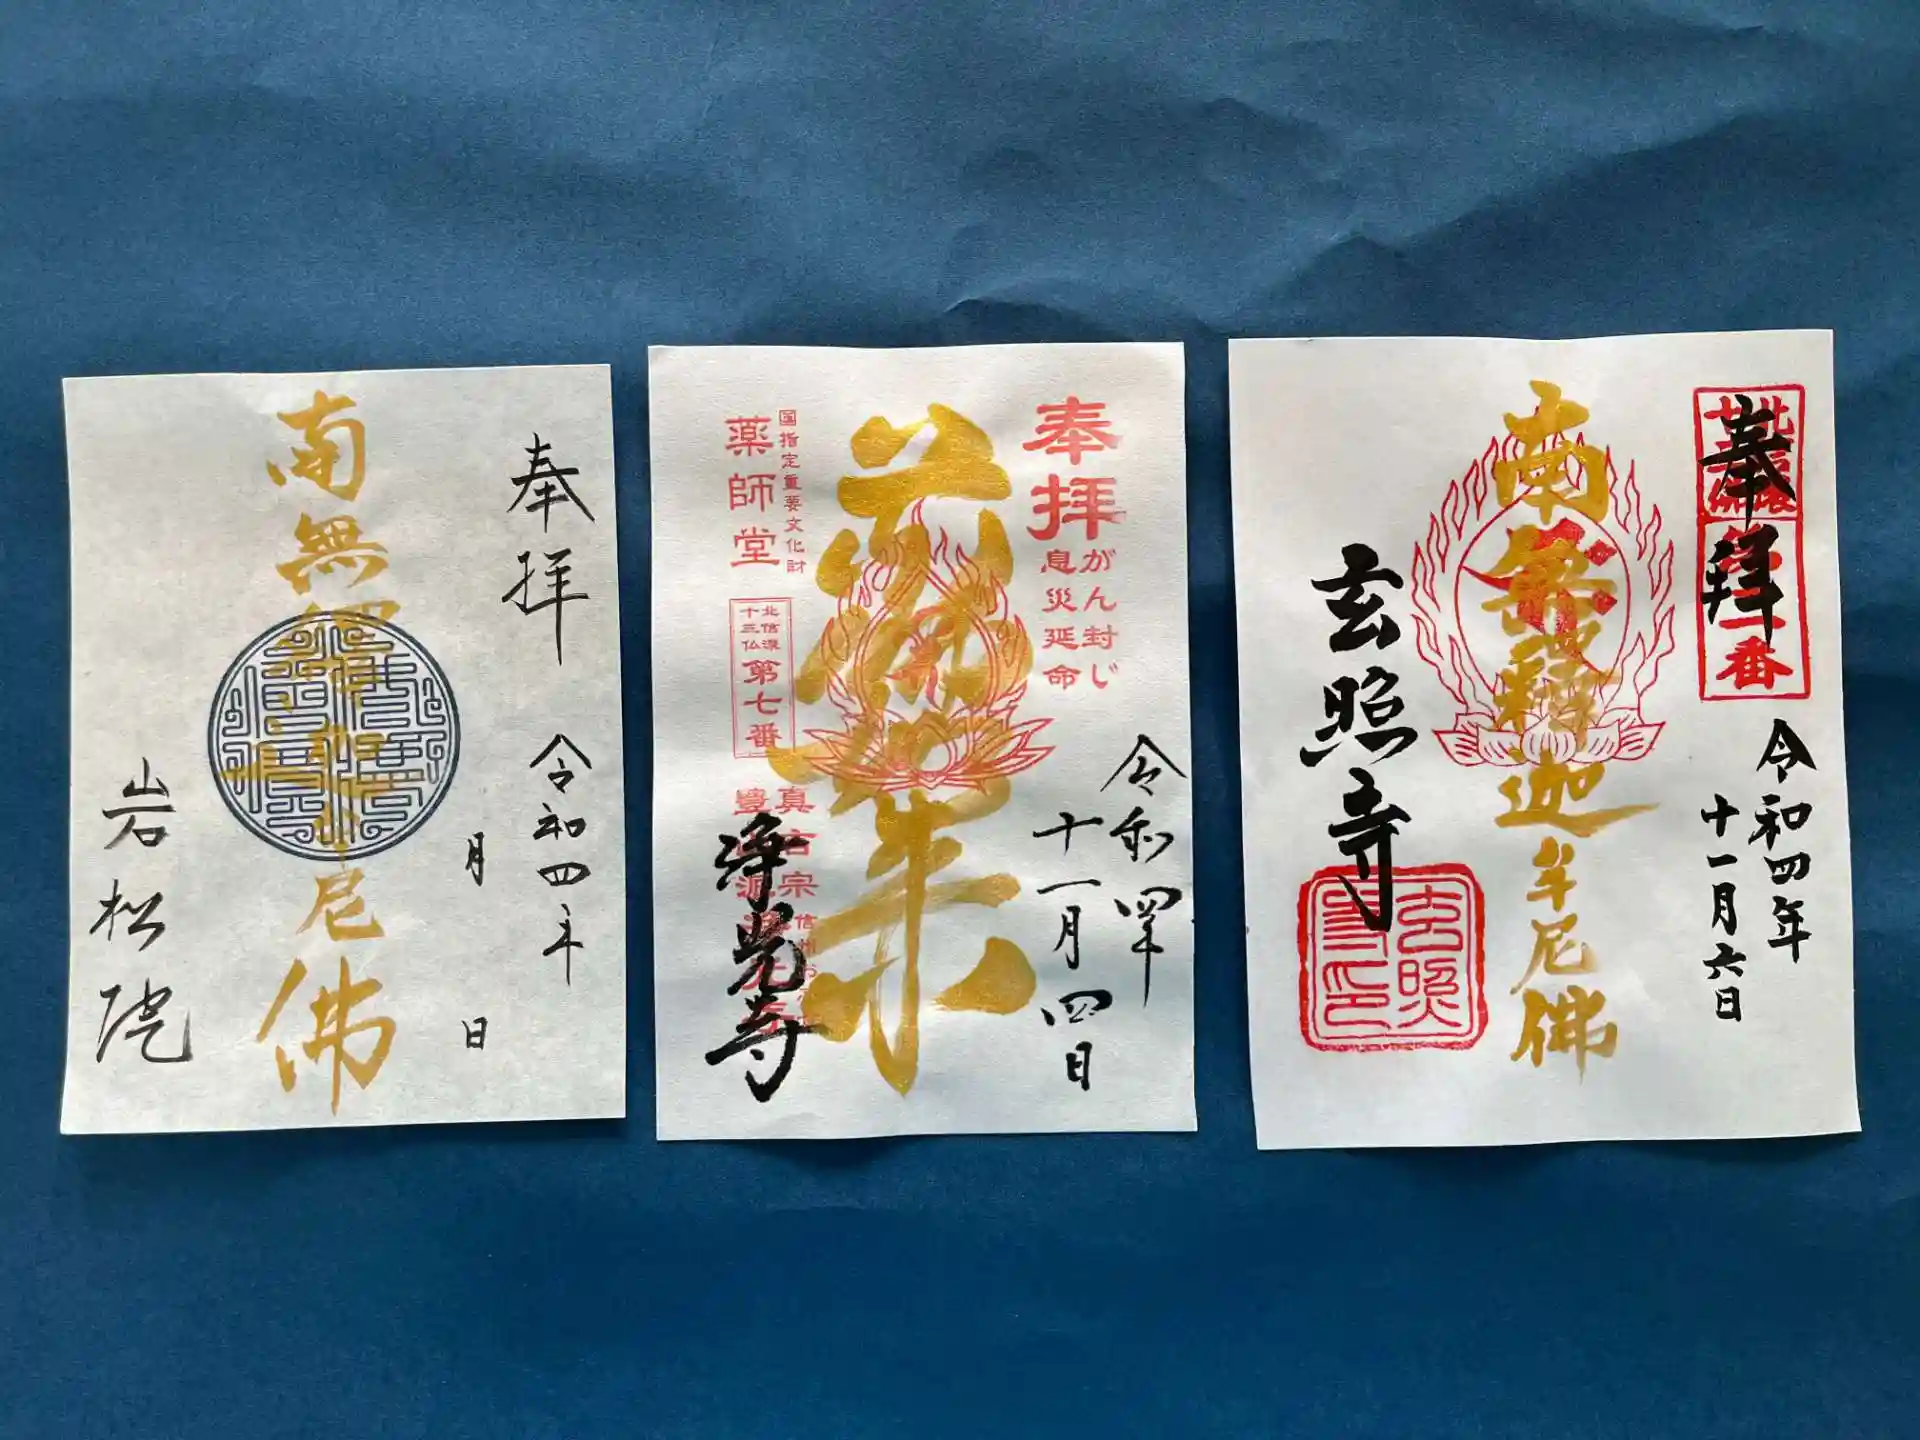 奉拝
令和四年
月
日
南無釈迦牟尼佛
岩松院
奉拝
がん封じ
息災延命
令和四年
十一月四日
如来
国指定重要文化財
薬師堂
北信濃
十三仏
第七番
真言宗
浄光寺
奉拝
番
令和四年
十一月六日
南無釋迦牟尼佛
玄照寺